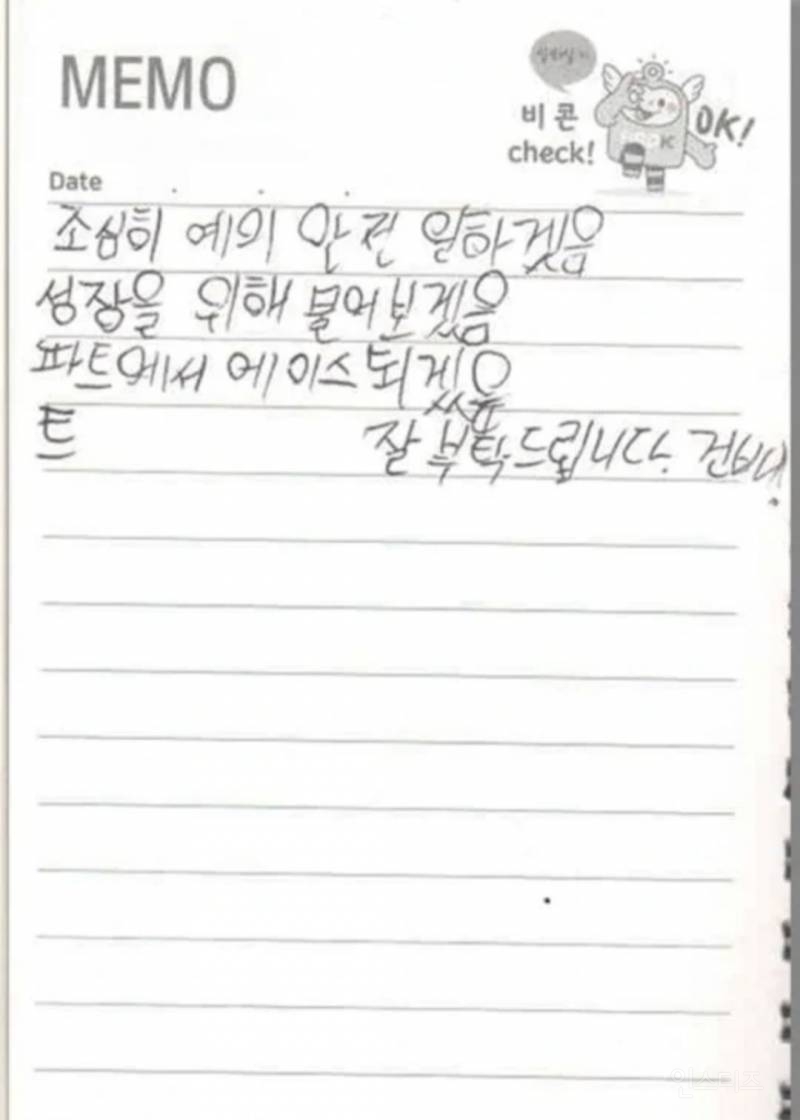 MEMO
비 콘
check!
OK!
Date
조심히 예의 안전 일하겠음
성장을 위해 물어보겠음
파트에서 에이스 되겠음
트
잘 부탁드립니다. 건배!